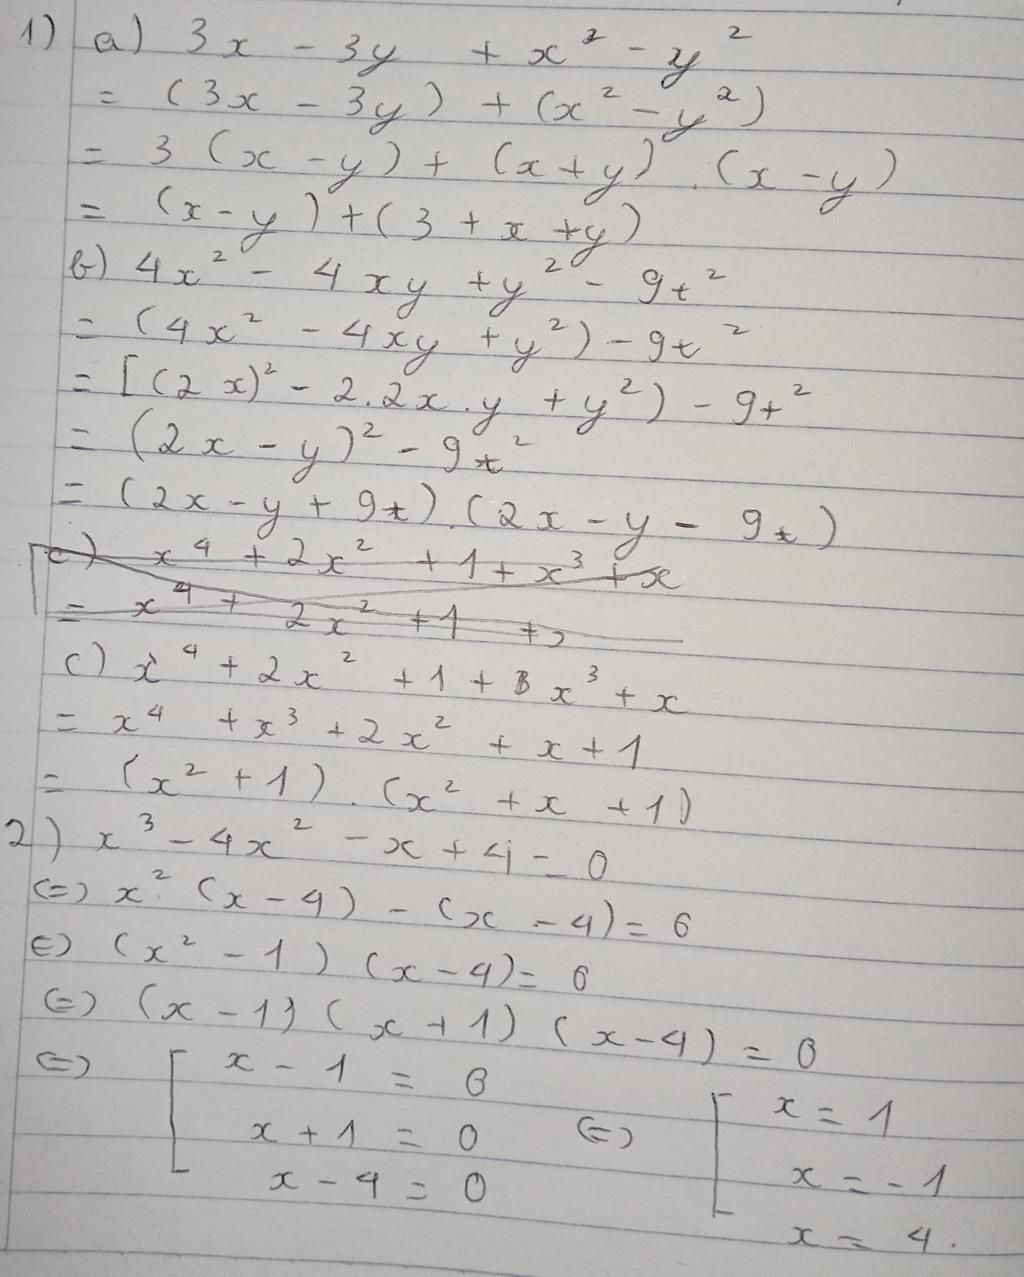 1) a) 3x - 3y + x² - y²
= (3x - 3y) + (x² - y²)
= 3 (x - y) + (x + y) . (x - y)
= (x - y) + (3 + x + y)
b) 4x² - 4xy + y² - 9t²
= (4x² - 4xy + y²) - 9t²
= [(2x)² - 2.2x.y + y²) - 9t²
= (2x - y)² - 9t²
= (2x - y + 9t) . (2x - y - 9t)
c) x⁴ + 2x² + 1 + x³ + x
= x⁴ + 2x² + 1 +
c) x⁴ + 2x² + 1 + x³ + x
= x⁴ + x³ + 2x² + x + 1
= (x² + 1) . (x² + x + 1)
2) x³ - 4x² - x + 4 = 0
(=) x² (x - 4) - (x - 4) = 0
(=) (x² - 1) (x - 4) = 0
(=) (x - 1) (x + 1) (x - 4) = 0
(=) [ x - 1 = 0
x + 1 = 0
x - 4 = 0
(=) [ x = 1
x = -1
x = 4.